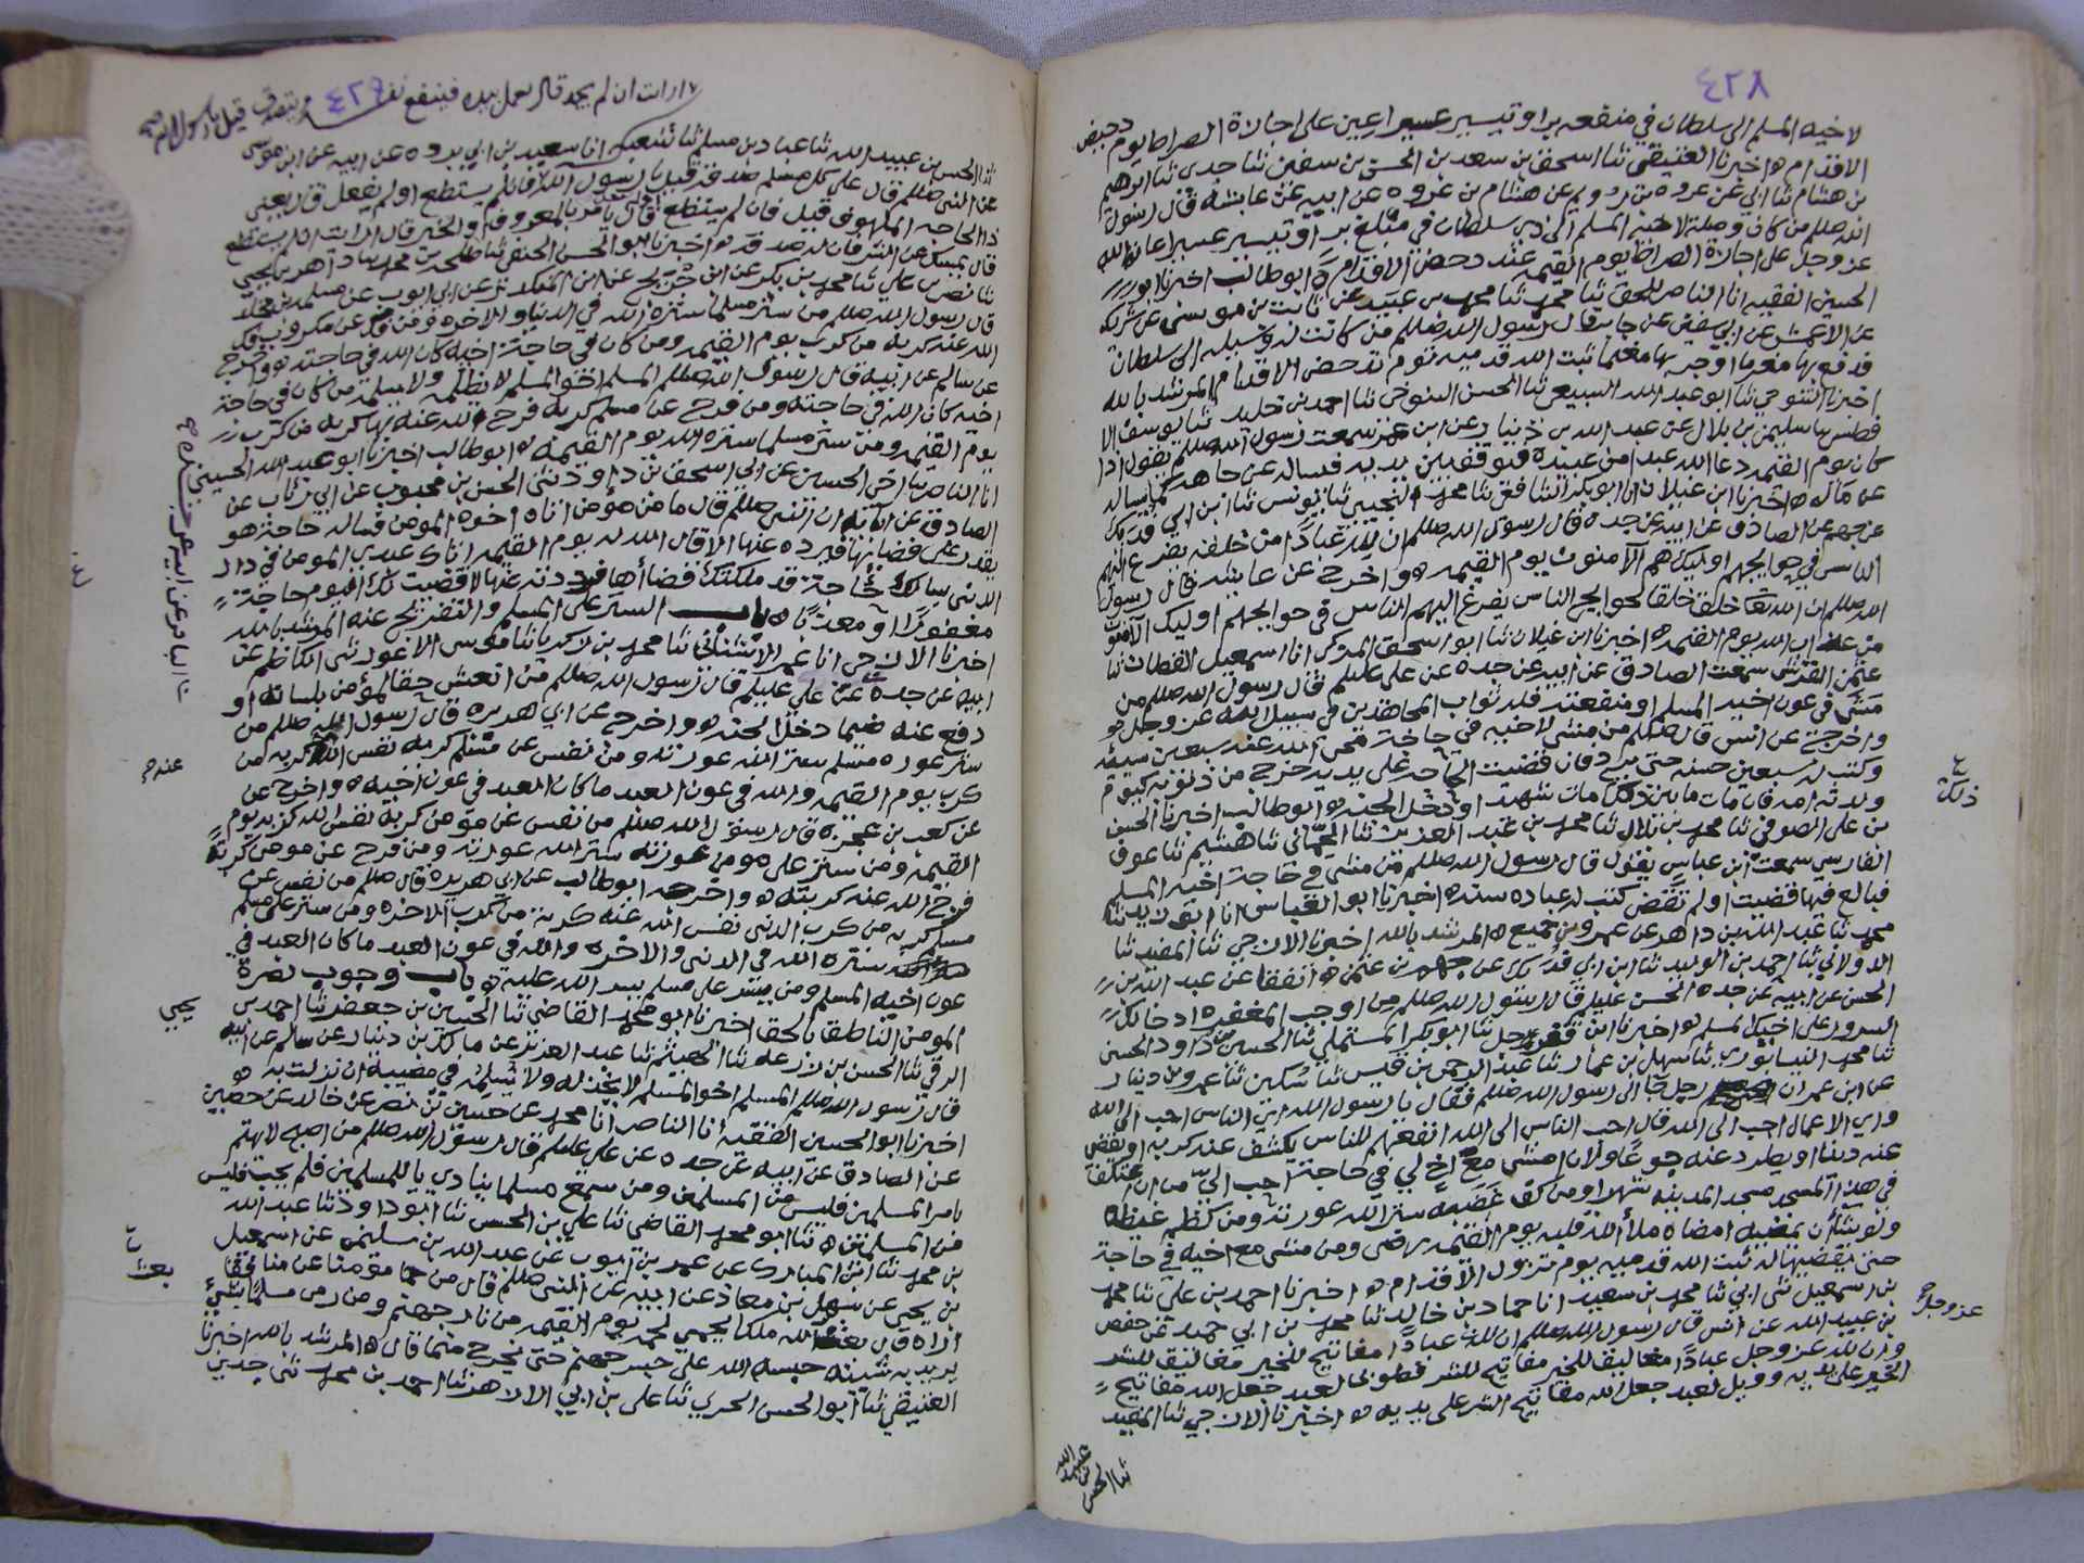 ٤٢٨
لاخيه المسلم الى سلطان في منفعه بر او تيسير عسير اعين على اجازة الصراط يوم دحض
الاقدام ه اخبرنا العتيقي ثنا اسحق بن سعد بن الحسن بن سفين ثنا جدى ثنا ابرهيم
بن هشام ثنا ابي عن عروه بن رويم عن هشام بن عروه عن ابيه عن عايشه قال رسول
الله صللم من كان وصلة لاخيه المسلم الى ذي سلطان في مبلغ بر او تيسير عسير اعانه الله
عز وجل على اجازة الصراط يوم القيمه عند دحض الاقدام ه ابو طالب اخبرنا ابو
الحسين الفقيه انا الناصر للحق ثنا محمد ثنا محمد بن عبيد عن ثابت بن موسى عن شريك
عن الاعمش عن ابي سفين عن جابر قال رسول الله صللم من كانت له وسيله الى سلطان
فدفع بها مغرما او جر بها مغنما ثبت الله قدميه يوم تدحض الاقدام المرشد بالله
اخبرنا التنوخي ثنا ابو عبد الله السبيعي ثنا الحسن التنوخي ثنا احمد بن خليد ثنا يوسف الا
فطس ثنا سليمن بن بلال عن عبد الله بن دينار عن ابن عمر سمعت رسول الله صللم يقول اذا
كان يوم القيمه دعا الله عبدا من عبيده فيوقف بين يديه فيساله عن جاهه كما يساله
عن ماله ه اخبرنا ابن غيلان انا ابو بكر الشافعي ثنا محمد ثنا يونس ثنا ابن ابي فديك
عن جهم عن الصادق عن ابيه عن جده قال رسول الله صللم ان لله عبادا من خلقه يفزع اليهم
الناس في حوايجهم اوليك هم الآمنون يوم القيمه ه واخرج عن عايشه قال رسول
الله صللم ان الله تعا خلق خلقا لحوايج الناس يفزع اليهم الناس في حوايجهم اوليك الآمنون
من عذاب الله يوم القيمه ه اخبرنا ابن غيلان ثنا ابو اسحق المزكى انا اسمعيل القطان ثنا
عثمن القرشي سمعت الصادق عن ابيه عن جده عن علي عليلم قال رسول الله صللم من
مشى في عون اخيه المسلم او منفعته فله ثواب المجاهدين في سبيل الله عز وجل ه
واخرج عن انس قال صللم من مشى لاخيه في حاجة محى الله عنه سبعين سيئه
وكتب له سبعين حسنه حتى يرجع فان قضيت الحاجه على يديه خرج من ذنوبه كيوم
ولدته امه فان مات ما بين ذلك مات شهيدا ودخل الجنه ه ابو طالب اخبرنا الحسن
بن علي الصوفي ثنا محمد بن بلال ثنا محمد بن عبد العزيز ثنا الحماني ثنا هشيم ثنا عوف
الفارسي سمعت ابن عباس يقول قال رسول الله صللم من مشى في حاجة اخيه المسلم
فبالغ فيها قضيت او لم تقض كتب له عباده سنه ه اخبرنا ابو العباس انا
محمد ثنا عبد الله بن داهر عن عمرو بن جميع ه المرشد بالله اخبرنا الازجي ثنا المفيد ثنا
الدولابي ثنا احمد بن الوليد ثنا ابن ابي فديك عن جهم بن عثمن ه اتفقا عن عبد الله بن
الحسن عن ابيه عن جده الحسن عليلم قال رسول الله صللم من اوجب المغفره ادخالك
السرور على اخيك المسلم ه اخبرنا ابن ثنا ابو بكر المستملي ثنا الحسين بن داود الحسين
ثنا محمد النيسابوري ثنا سهيل بن عمار ثنا عبد الرحمن بن قيس ثنا سكين ثنا عمرو بن دينار
عن ابن عمر ان رجلا جا الى رسول الله صللم فقال يا رسول الله اي الناس احب الى الله
واي الاعمال احب الى الله قال احب الناس الى الله انفعهم للناس يكشف عنه كربه او يقضي
عنه دينا او يطرد عنه جوعا ولان امشي مع اخ لي في حاجة احب الي من ان اعتكف
في هذا المسجد مسجد المدينه شهرا ومن كف غضبه ستر الله عورته ومن كظم غيظه
ولو شآ ان يمضيه امضاه ملأ الله قلبه يوم القيمه رضى ومن مشى مع اخيه في حاجة
حتى يقضيها له ثبت الله قدميه يوم تزول الاقدام ه اخبرنا احمد بن علي ثنا محمد
بن اسمعيل ثنى ابي ثنا محمد بن سعيد انا حماد بن خالد ثنا محمد بن ابي حميد عن حفص
بن عبيد الله عن انس قال رسول الله صللم ان لله عبادا مفاتيح للخير مغاليق للشر
وان لله عز وجل عبادا مغاليق للخير مفاتيح للشر فطوبى لعبد جعل الله مفاتيح
الخير على يديه وويل لعبد جعل الله مفاتيح الشر على يديه ه اخبرنا الازجي ثنا المفيد
ذلك
عز وجل
ثنا الحسن
بن
عبيد الله
٤٢٩
ارايت ان لم يجد قال يعمل بيده فينفع نفسه ويتصدق قيل يا رسول الله
ثنا الحسن بن عبيد الله ثنا عباد بن مسلم ثنا شعبه انا سعيد بن ابي برده عن ابيه عن ابن موسى
عن النبي صللم قال على كل مسلم صدقه قيل يا رسول الله فان لم يستطع او لم يفعل قال يعين
ذا الحاجه الملهوف قيل فان لم يستطع قال يامر بالمعروف والخير قال ارايت ان لم يستطع
قال يمسك عن الشر فانه له صدقه ه اخبرنا ابو الحسن الحنفي ثنا طلحه بن محمد
ثنا نصر بن علي ثنا محمد بن بكر عن ابن جريج عن ابن المنكدر عن ابي ايوب عن مسلمه بن مخلد
قال رسول الله صللم من ستر مسلما ستره الله في الدنيا والاخره ومن فك عن مكروب فك
الله عنه كربه من كرب يوم القيمه ومن كان في حاجة اخيه كان الله في حاجته ه واخرج
عن سالم عن ابيه قال رسول الله صللم المسلم اخو المسلم لا يظلمه ولا يسلمه من كان في حاجة
اخيه كان الله في حاجته ومن فرج عن مسلم كربه فرج الله عنه بها كربه من كرب
يوم القيمه ومن ستر مسلما ستره الله يوم القيمه ه ابو طالب اخبرنا ابو عبد الله الحسيني
انا الناصر ثنا اخي الحسين عن ابي اسحق بن داود ثنى الحسن بن محبوب عن ابي عن
الصادق عن آبائه ان النبي صللم قال ما من مؤمن اتاه اخوه المومن فساله حاجة هو
يقدر على قضايها فيرده عنها الا قال الله له يوم القيمه اتاك عبدي المومن في دار
الدنى يسالك حاجة قد ملكتك قضاها فرددته عنها لا قضيت لك اليوم حاجة
مغفورا او معذبا ه باب الستر على المسلم والتفريج عنه المرشد بالله
اخبرنا الازجي انا عمر ثنا محمد بن زكريا ثنا موسى الاعور ثنى الكاظم عن
ابيه عن جده عن علي عليلم قال رسول الله صللم من انعش حقا لمؤمن بلسانه او
دفع عنه ضيما دخل الجنه ه واخرج عن ابي هريره قال رسول الله صللم من
ستر عوره مسلم ستر الله عورته ومن نفس عن مسلم كربه نفس الله كربه من
كرب يوم القيمه والله في عون العبد ما كان العبد في عون اخيه ه واخرج عن
عن كعب بن عجره قال رسول الله صللم من نفس عن مؤمن كربة نفس الله كربه يوم
القيمه ومن ستر على مومن عورته ستر الله عورته ومن فرج عن مومن كربة
فرج الله عنه كربته ه واخرجه ابو طالب عن ابي هريره قال صللم من نفس عن
مسلم كربه من كرب الدنى نفس الله عنه كربة من كرب الاخره ومن ستر على مسلم
ستره الله في الدنى والاخره والله في عون العبد ما كان العبد في
عون اخيه المسلم ومن ييسر على مسلم يسر الله عليه ه باب وجوب نصرة
المومن الناطق بالحق اخبرنا ابو محمد القاضي ثنا الحسين بن جعفر ثنا احمد بن
الرقي ثنا الحسن بن زرعه ثنا الهيثم ثنا عبد العزيز عن مالك بن دينار عن سالم عن ابيه
قال رسول الله صللم المسلم اخو المسلم لا يخذله ولا يسلمه في مصيبة ان نزلت به ه
اخبرنا ابو الحسين الفقيه انا الناصر انا محمد عن حسين بن نصر عن خالد عن حصين
عن الصادق عن ابيه عن جده عن علي عليلم قال رسول الله صللم من اصبح لا يهتم
بامر المسلمين فليس من المسلمين ومن سمع مسلما ينادي ياللمسلمين فلم يجب فليس
من المسلمين ه ثنا ابو محمد القاضي ثنا علي بن الحسن ثنا ابو داود ثنا عبد الله
بن محمد ثنا ابن المبارك عن عمر بن ايوب عن عبد الله بن سليمن عن اسمعيل
بن يحيى عن سهل بن معاذ عن ابيه عن النبي صللم قال من حما مؤمنا عن منافق
اراه قال بعث الله ملكا يحمي لحمه يوم القيمه من نار جهنم ومن رمى مسلما بشئ
يريد به شينه حبسه الله على جسر جهنم حتى يخرج مما قال ه المرشد بالله اخبرنا
العتيقي ثنا ابو الحسن الحربي ثنا علي بن ابي الازهر ثنا احمد بن محمد ثنى جدي
عنده
يحيى
بعث
ثنا الباقر عن ابيه عن جده